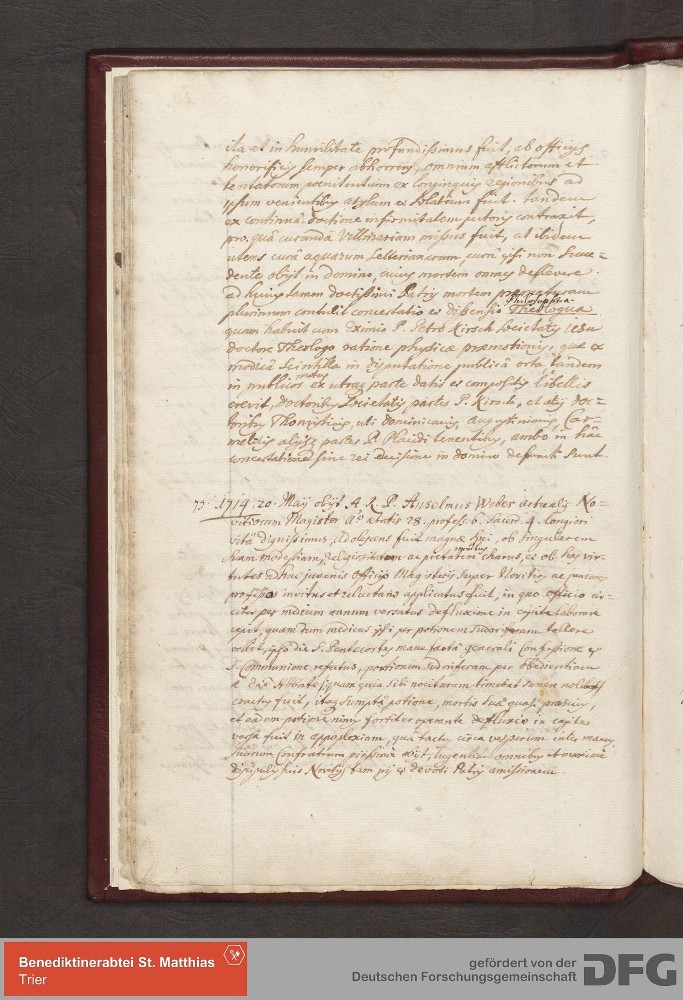 ita et in humilitate profundissimus fuit, ab officijs
honorificis semper abhorrens, omnium afflictorum et
tentatorum poenitentium ex longinquis regionibus ad
ipsum venientibus asylum et solatium fuit. tandem
ex continua doctione infirmitatem pectoris contraxit,
pro quâ curandâ Villmariam missus fuit, at ibidem
utens curâ aquarum Selterianarum, curâ ipsi non succe=
dente obijt in domino, cuius mortem omnes deflevere.
ad huius tamen doctissimi Patris mortem praematuram
plurimum contulit concertatio et dissensio Philosophica Theologica
quam habuit cum Eximio P. Petro Kirsch Societatis Jesu
doctore Theologo ratione physicae praemotionis, quae ex
modicâ scintillâ in disputatione publicâ orta tandem
in publicos motus ex utraque parte datis et compositis libellis
crevit, doctoribus Societatis partes P. Kirsch, et alijs doc=
toribus Thomisticis, uti dominicanis, Augustinianis, Car=
melitis alijsque partes P. Placidi tenentibus, ambo in hâc
concertatione sine rei decisione in domino defuncti sunt.
73. 1714. 20. Maij obijt A. R. P. Anselmus Weber actualis No=
vitiorum Magister aõ aetatis 28. profess. 6. sacerd. 4. longiori
vitâ dignissimus; adolescens fuit magnae spei, ob singularem
suam modestiam, religiositatem ac pietatem omnibus charus, et ob has vir=
tutes adhuc juvenis officio Magisterij super Novitios ac juniores
professos invitus et reluctans applicatus fuit, in quo officio cir=
citer per medium annum versatus defluxione in capite laborare
cepit, quam dum medicus ipsi per potionem sudoriferam tollere
vellet, ipso die S. Pentecostes mane factâ generali Confessione et
S. Communione refectus, potionem sudoriferam per obedientiam
a dno Abbate (quam quia sibi nocituram timebat sumere nolebat)
coactus fuit, itaque sumptâ potione, mortis suae quasi praescius,
et eadem potione nimis fortiter operante defluxio in capite
versa fuit in appoplexiam, quâ tactus circa vesperum inter manus
suorum Confratrum piissime obijt, lugentibus omnibus et maxime
discipulis suis Novitijs tam pij et devoti Patris amissionem.
Benediktinerabtei St. Matthias
Trier
gefördert von der
Deutschen Forschungsgemeinschaft
DFG